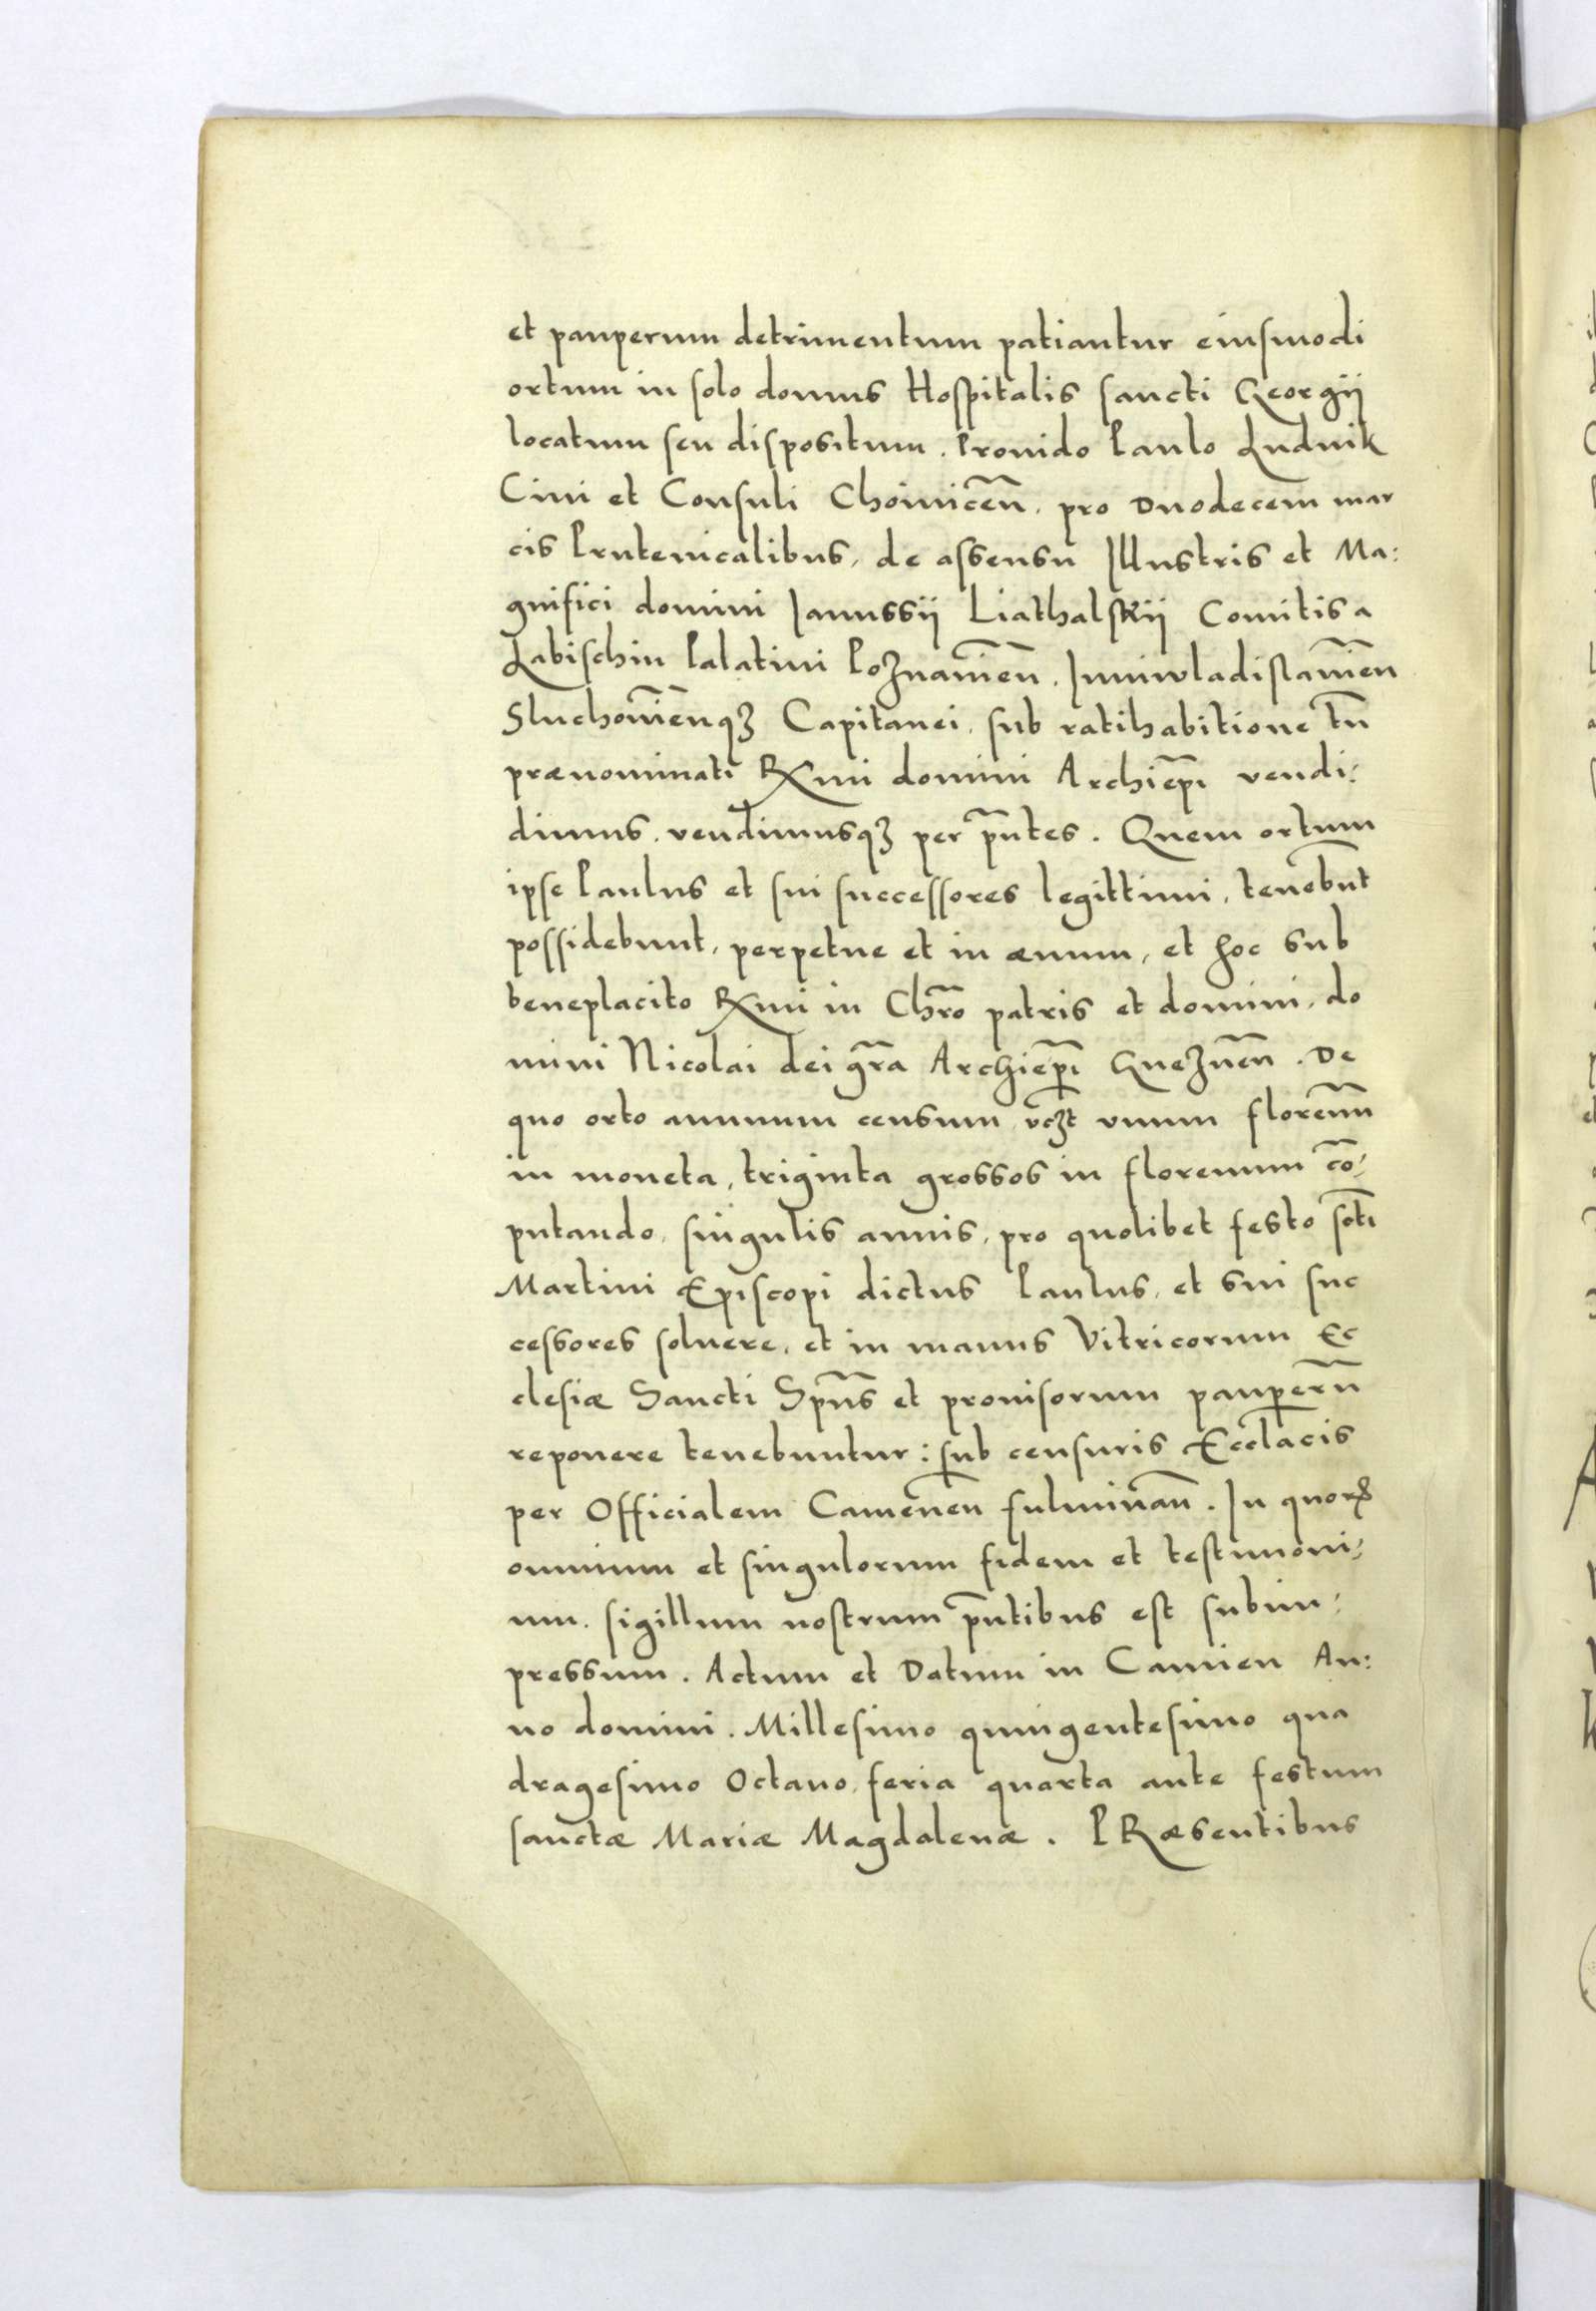 et pauperum detrimentum patiantur eiusmodi
ortum in solo domus Hospitalis sancti Georgii
locatum seu dispositum. Prouido Paulo Luduik
Ciui et Consuli Choinicen̄, pro Duodecem mar
cis Prutenicalibus, de assensu Illustris et Ma:
gnifici domini Ianussii Liathalskii Comitis a
Labischin Palatini Poznanien̄, Iuniwladislauien̄
Sluchouien̄qꝫ Capitanei, sub ratihabitione tn̄
prænominati Rmi domini Archiep̄i vendi:
dimus, vendimusqꝫ per p̄ntes. Quem ortum
ipse Paulus et sui successores legittimi, teneb̄nt
possidebunt, perpetue et in æuum, et hoc sub
beneplacito Rmi in Chr̄o patris et domini, do
mini Nicolai dei gr̄a Archiep̄i Gneznen̄. De
quo orto annuum censum vc̄ꝫt vnum florenu̅
in moneta, triginta grossos in florenum co̅:
putando, singulis annis, pro quolibet festo sct̄i
Martini Episcopi dictus Paulus, et sui suc
cessores soluere, et in manus Vitricorum Ec
clesiæ Sancti Sp̄us et prouisorum pauperu̅
reponere tenebuntur: sub censuris Eccl̄acis
per Officialem Camenen̄ fulminan̄. In quorꝝ
omnium et singulorum fidem et testimoni:
um, sigillum nostrum p̄ntibus est subim:
pressum. Actum et Datum in Camien An:
no domini. Millesimo quingentesimo qua
dragesimo Octauo, feria quarta ante festum
sanctæ Mariæ Magdalenæ. PRæsentibus